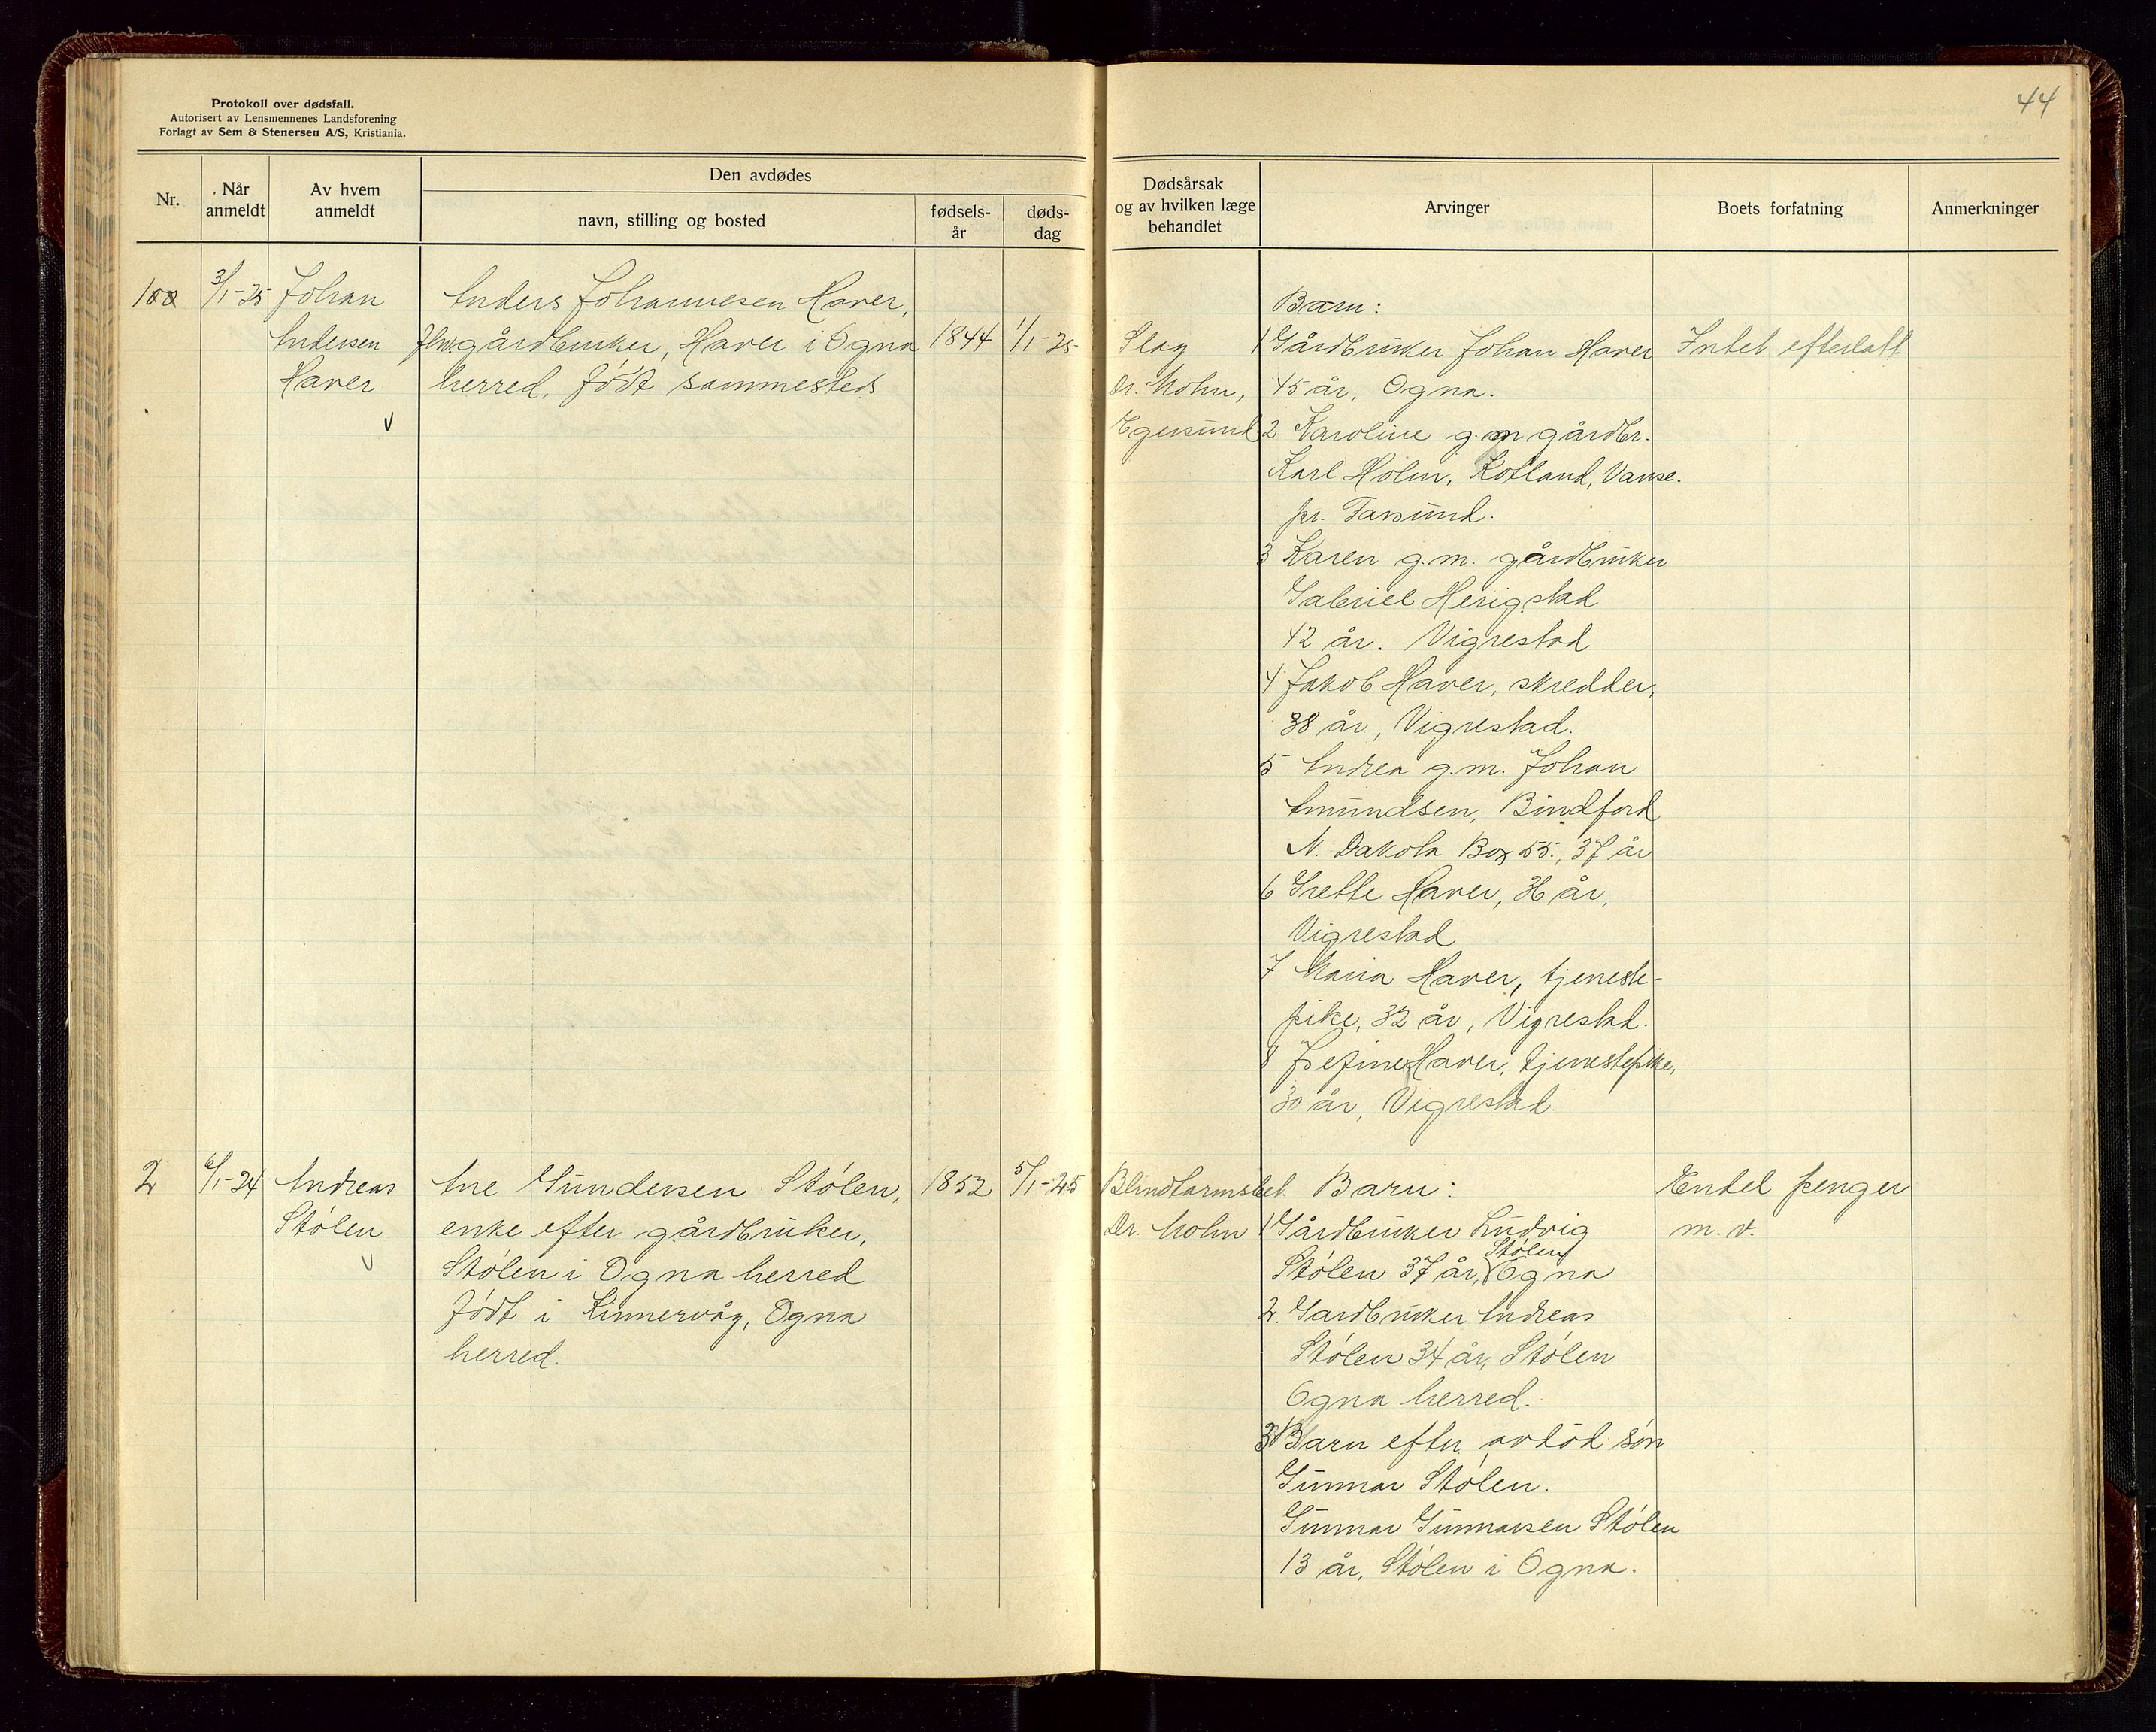 Protokoll over dødsfall.
Autorisert av Lensmennenes Landsforening
Forlagt av Sem & Stenersen A/S, Kristiania.
44
Nr.
Når anmeldt
Av hvem anmeldt
Den avdødes
navn, stilling og bosted
fødsels-år
døds-dag
Dødsårsak og av hvilken læge behandlet
Arvinger
Boets forfatning
Anmerkninger
3/1-25
Johan
Andersen
Haver
Anders Johannesen Haver,
gårdbruker, Haver i Ogna
herred, født sammesteds
1844
1/1-25
Slag
Dr. Mohn,
Egersund
Barn:
1 Gårdbruker Johan Haver
45 år, Ogna.
2 Karoline g.m gårdbr.
Karl Holm, Kotland, Vanse.
pr. Farsund.
3 Karen g.m. gårdbruker
Gabriel Herigstad
42 år. Vigrestad
4 Jakob Haver, skredder,
38 år, Vigrestad.
5 Andrea g.m. Johan
Amundsen, Bindford
N. Dakota Box 55., 37 år
6 Grette Haver, 36 år,
Vigrestad
7 Maria Haver, tjeneste-
pike, 32 år, Vigrestad.
8 Haver, tjenestepike,
30 år, Vigrestad
Intet efterlatt
2
6/1-24
Andreas
Stølen
Ane Gundersen Stølen,
enke efter gårdbruker,
Stølen i Ogna herred
født i Kinnervåg, Ogna
herred.
1852
5/1-25
Blindtarmsbet.
Dr. Mohn
Barn:
1 Gårdbruker Ludvig
Stølen 37 år, Stølen Ogna
2. Gardbruker Andreas
Stølen 34 år, Stølen
Ogna herred.
3 Barn efter avdød søn
Gunnar Stølen.
Gunnar Gunnarsen Stølen
13 år, Stølen i Ogna.
Endel penger
m. v.